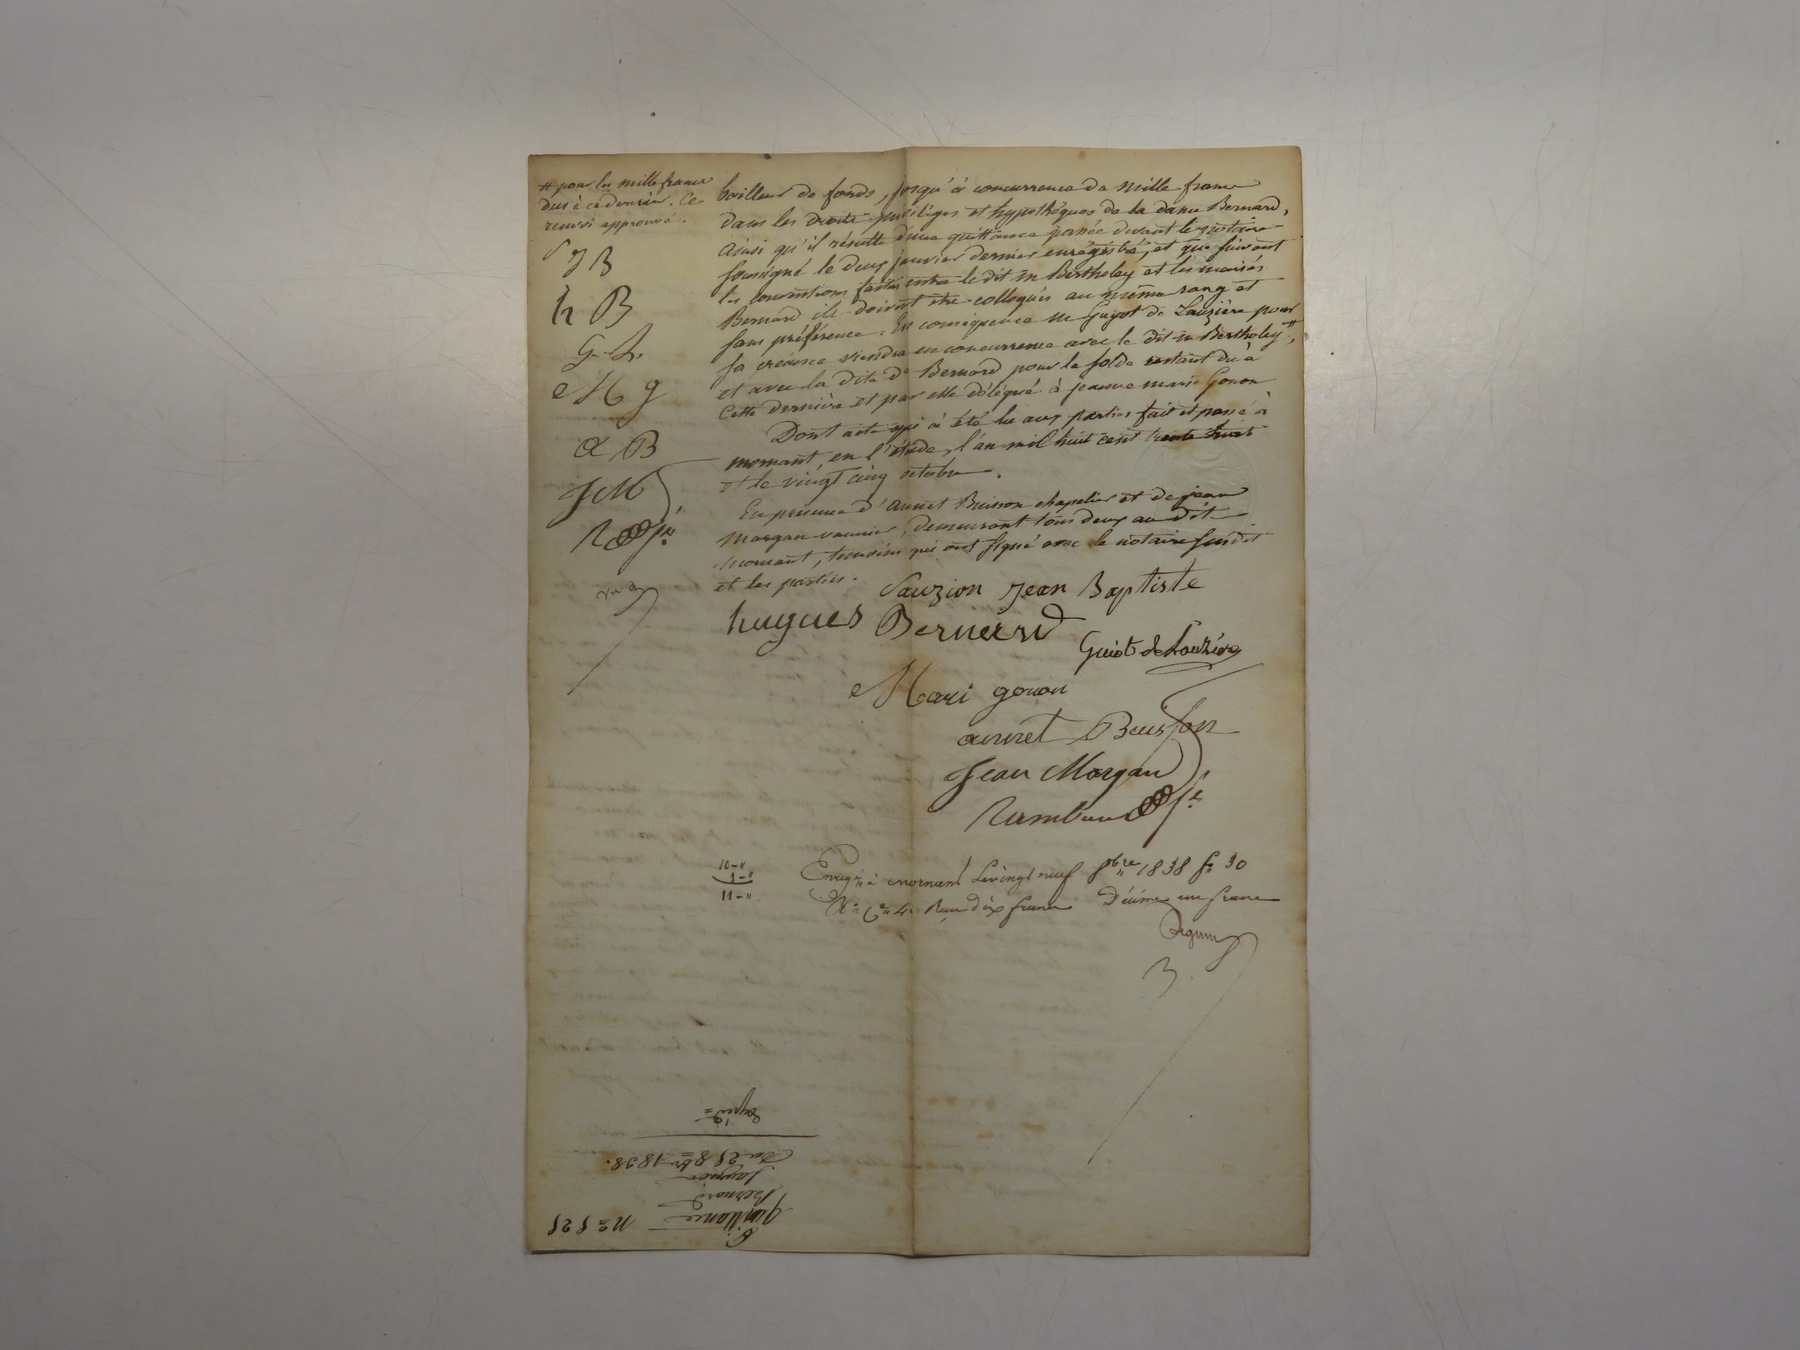 # pour les mille francs
dus à ce dernier. Ce
renvoi approuvé.
S J B
h B
G. L.
M g
a B
J M
R
bailleur de fonds, jusqu'à concurrence de mille francs
dans les droits privilèges et hypothèques de la dame Bernard,
ainsi qu'il résulte d'une quittance passée devant le notaire
soussigné le deux janvier dernier enrégistré, et que suivant
les conventions faites entre le dit Mr Bertholey et les mariés
Bernard ils doivent être colloqués au même rang et
sans préférence. En conséquence Mr Guyot de Lauzière pour
sa créance viendra en concurrence avec le dit Mr Bertholey #,
et avec la dite de Bernard pour le solde restant du à
cette dernière et par elle délégué à jeanne marie Gonon
Dont acte qui à été lu aux parties fait et passé à
mornant, en l'étude, l'an mil huit cent trente huit
et le vingt cinq octobre.
En présence d'Annet Buisson chapelier et de jean
Morgan vannier, demeurant tous deux au dit
Mornant, témoins qui ont signé avec le notaire susdit
et les parties.
Sauzion Jean Baptiste
hugues Bernard
Guiot de Lauzière
Mari gonon
annet Buisson
Jean Morgan
10-"
1-"
11-"
Enregé à mornant le vingt neuf 8bre 1838 fo 30
Ro Ce 4. Reçu dix francs Décime un franc
N° 525
Quittance
Bernard
Sauzion
Du 25 8bre 1838.
Expéd=